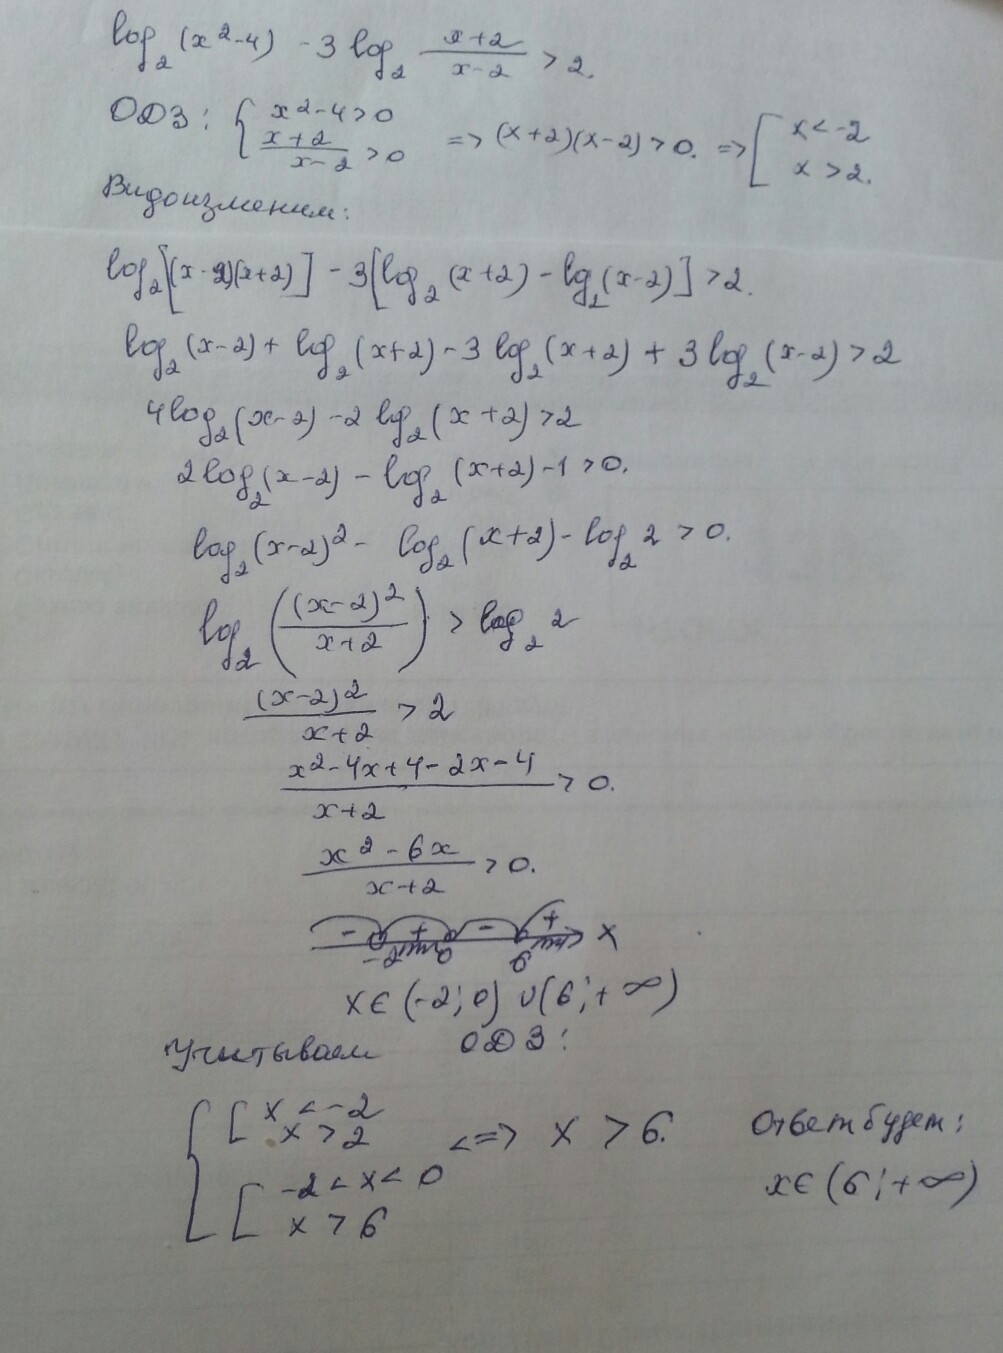 log₂(x²-4) - 3 log₂ (x+2)/(x-2) > 2.
ОДЗ: { x²-4>0 ; (x+2)/(x-2) > 0 => (x+2)(x-2) > 0. => [ x < -2 ; x > 2.
Видоизменим:
log₂[(x-2)(x+2)] - 3[log₂(x+2) - lg₂(x-2)] > 2.
log₂(x-2) + log₂(x+2) - 3 log₂(x+2) + 3 log₂(x-2) > 2
4log₂(x-2) - 2 lg₂(x+2) > 2
2log₂(x-2) - log₂(x+2) - 1 > 0.
log₂(x-2)² - log₂(x+2) - log₂ 2 > 0.
log₂((x-2)²/(x+2)) > log₂ 2
(x-2)²/(x+2) > 2
(x²-4x+4-2x-4)/(x+2) > 0.
(x²-6x)/(x+2) > 0.
- + - + x
-2 0 6
x∈(-2;0) ∪ (6;+∞)
Учитываем ОДЗ:
{ [ x < -2 ; x > 2 ; [ -2 < x < 0 ; x > 6 <=> x > 6.
Ответ будет:
x∈(6;+∞)